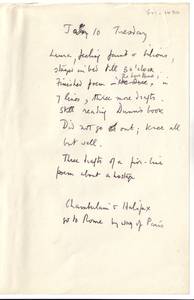 Jan 10 Tuesday
Laura, feeling faint & bilious,
stays in bed till 5 o'clock
Finished poem in
7 lines, three more drafts.
Still reading Dunne's book
Did not go out; knee all
but well.
Three drafts of a five-line
poem about a hostage.
Chamberlain & Halifax
go to Rome by way of Paris